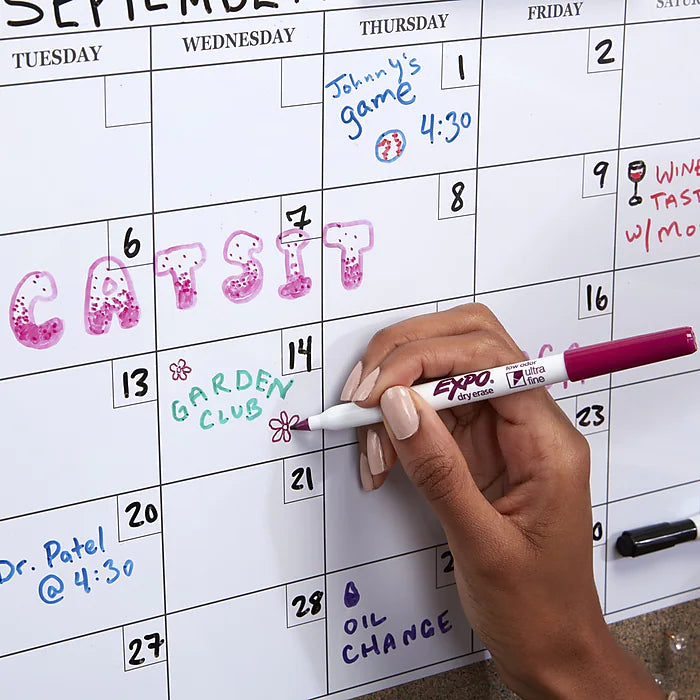 SEPTEMBER
TUESDAY WEDNESDAY THURSDAY FRIDAY
1 2
Johnny's
game
4:30
6 7 8 9
CATSIT
WINE
TAST
w/ Mo
13 14 16
GARDEN
CLUB
EXPO
dry erase
low odor
ultra
fine
20 21 23
Dr. Patel
@ 4:30
27 28
OIL
CHANGE